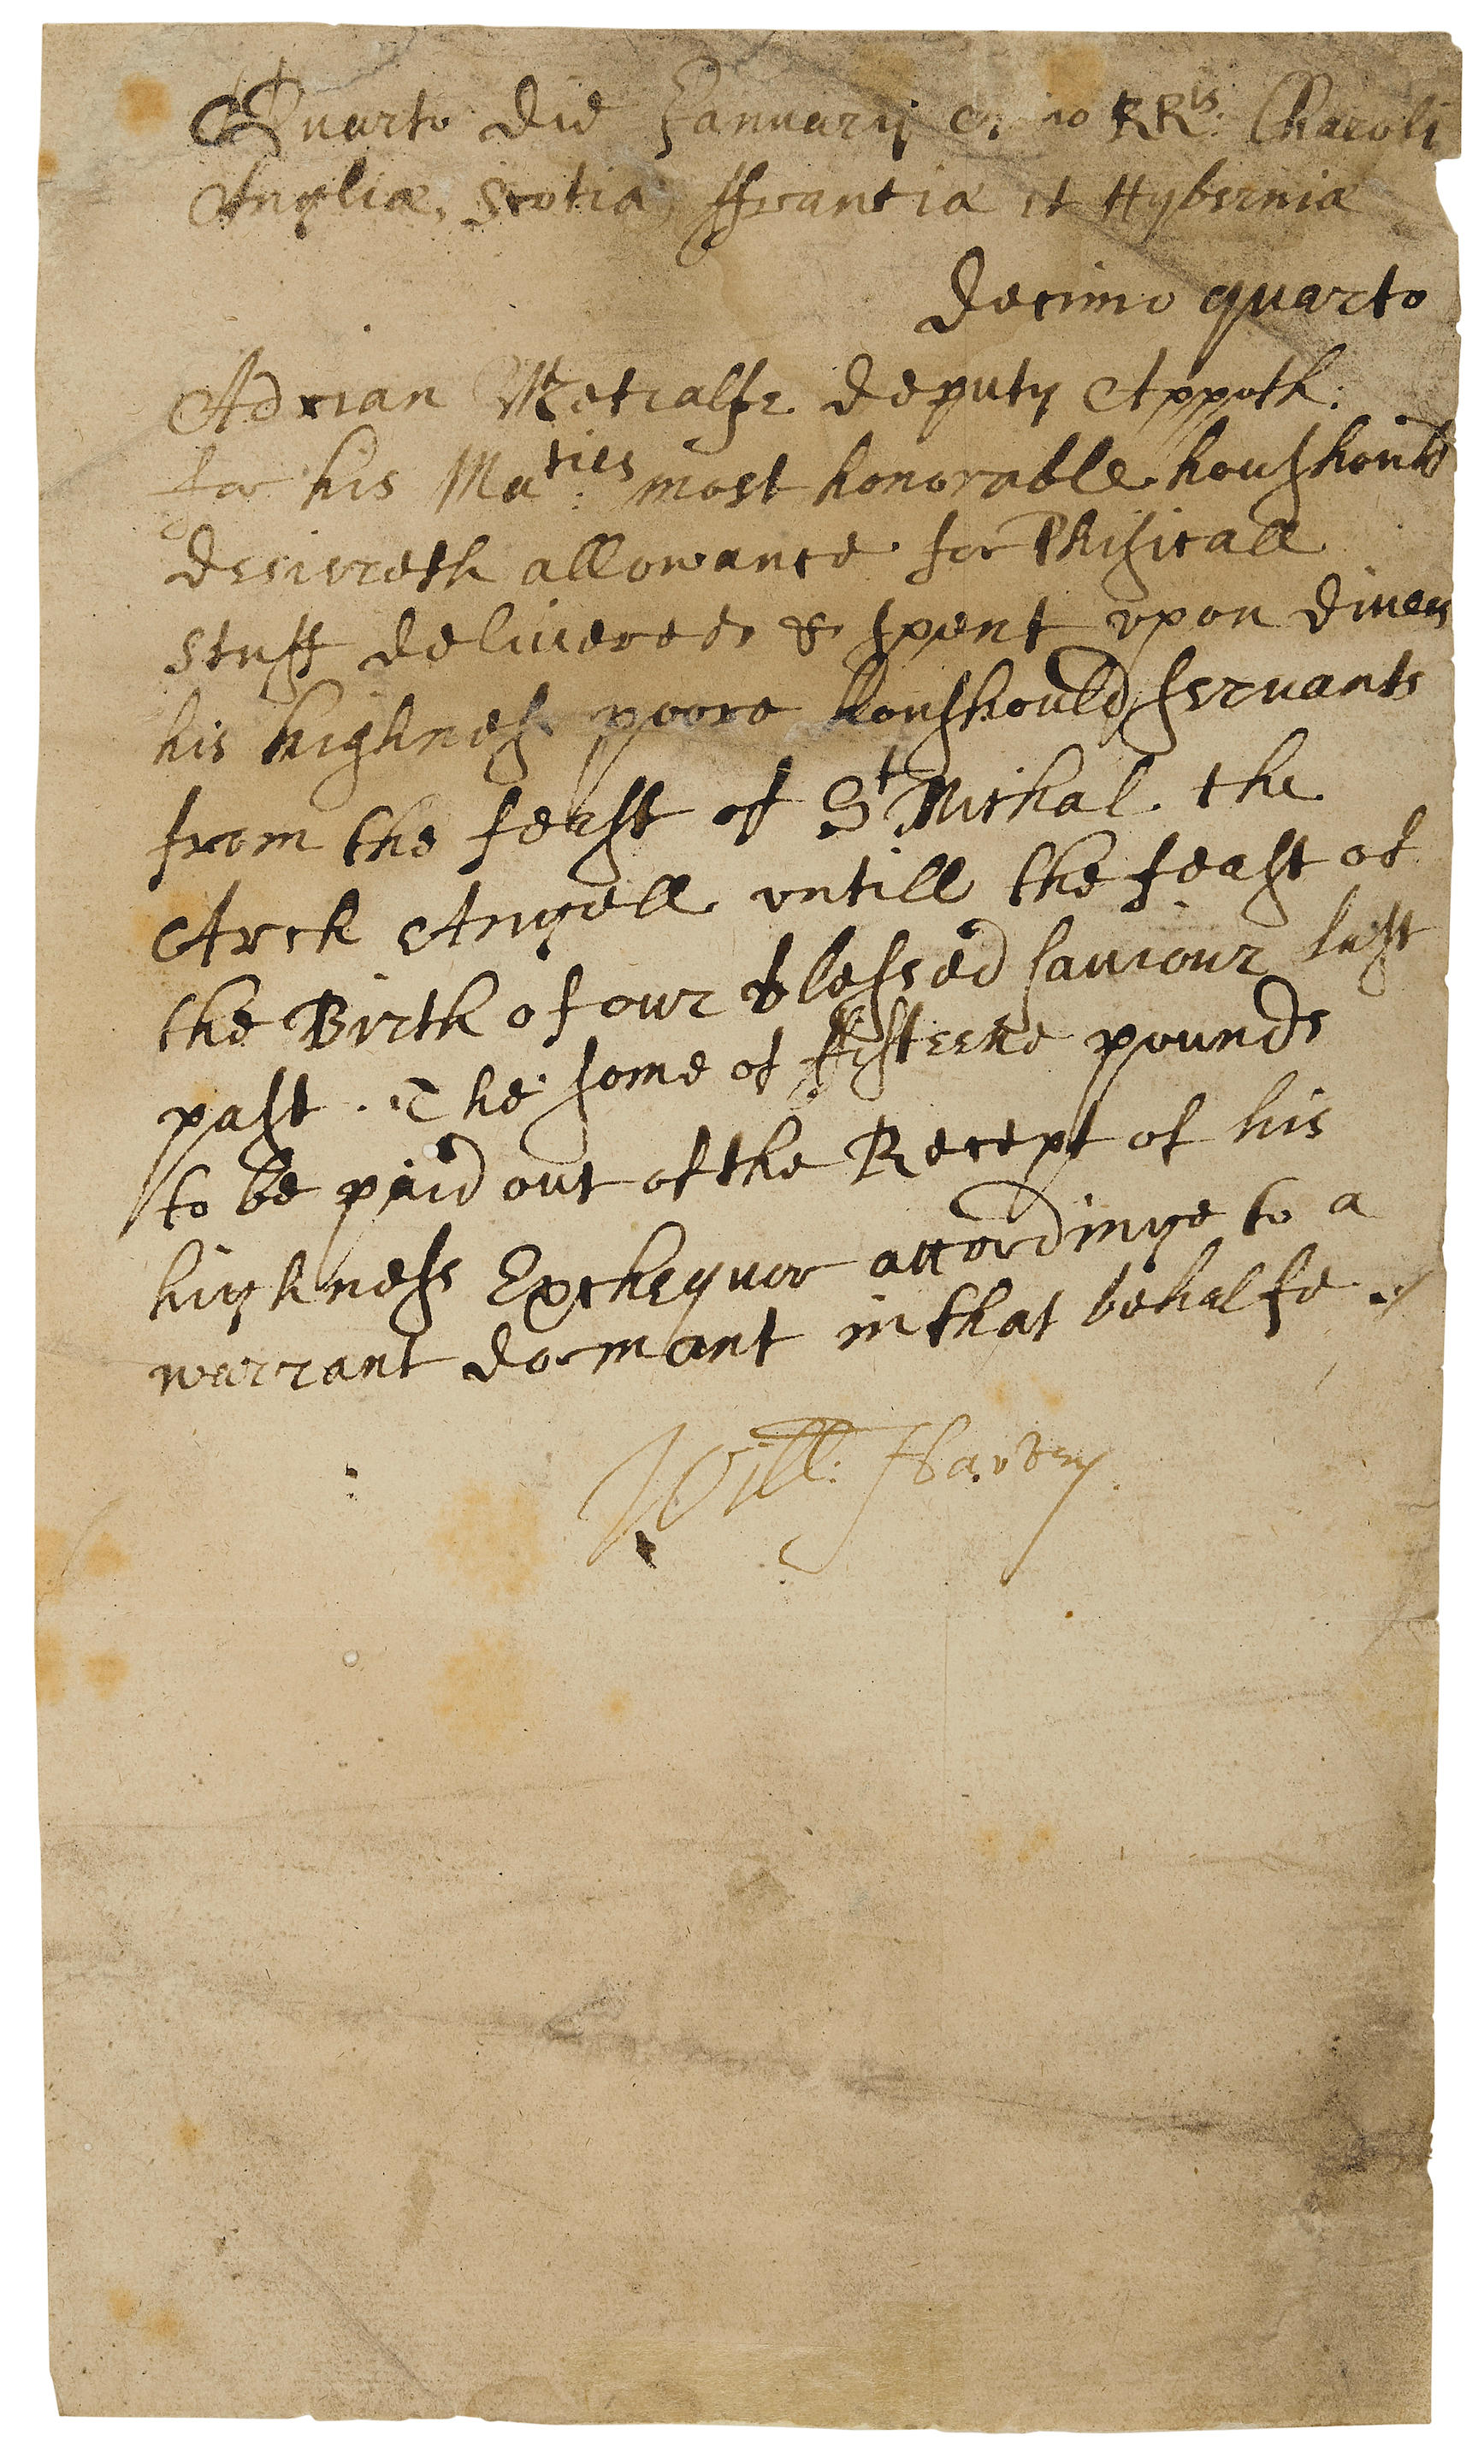 Quarto Die Januarij RRis. Charoli
Angliæ, Scotiæ, ffrantiæ et Hyberniæ
Decimo quarto
Adrian Metcalfe deputy Appoth:
for his Ma:ties most honorable houshould
desireth allowance for Phisicall
stuff delivered & spent vpon divers
his highnes poore houshould servants
from the feast of St Michal the
Arch Angell vntill the feast of
the Birth of our blessed saviour last
past. The some of ffifteene pounds
to be paid out of the Recept of his
highness Exchequor accordinge to a
warrant dormant in that behalfe .
Will: Harvey.